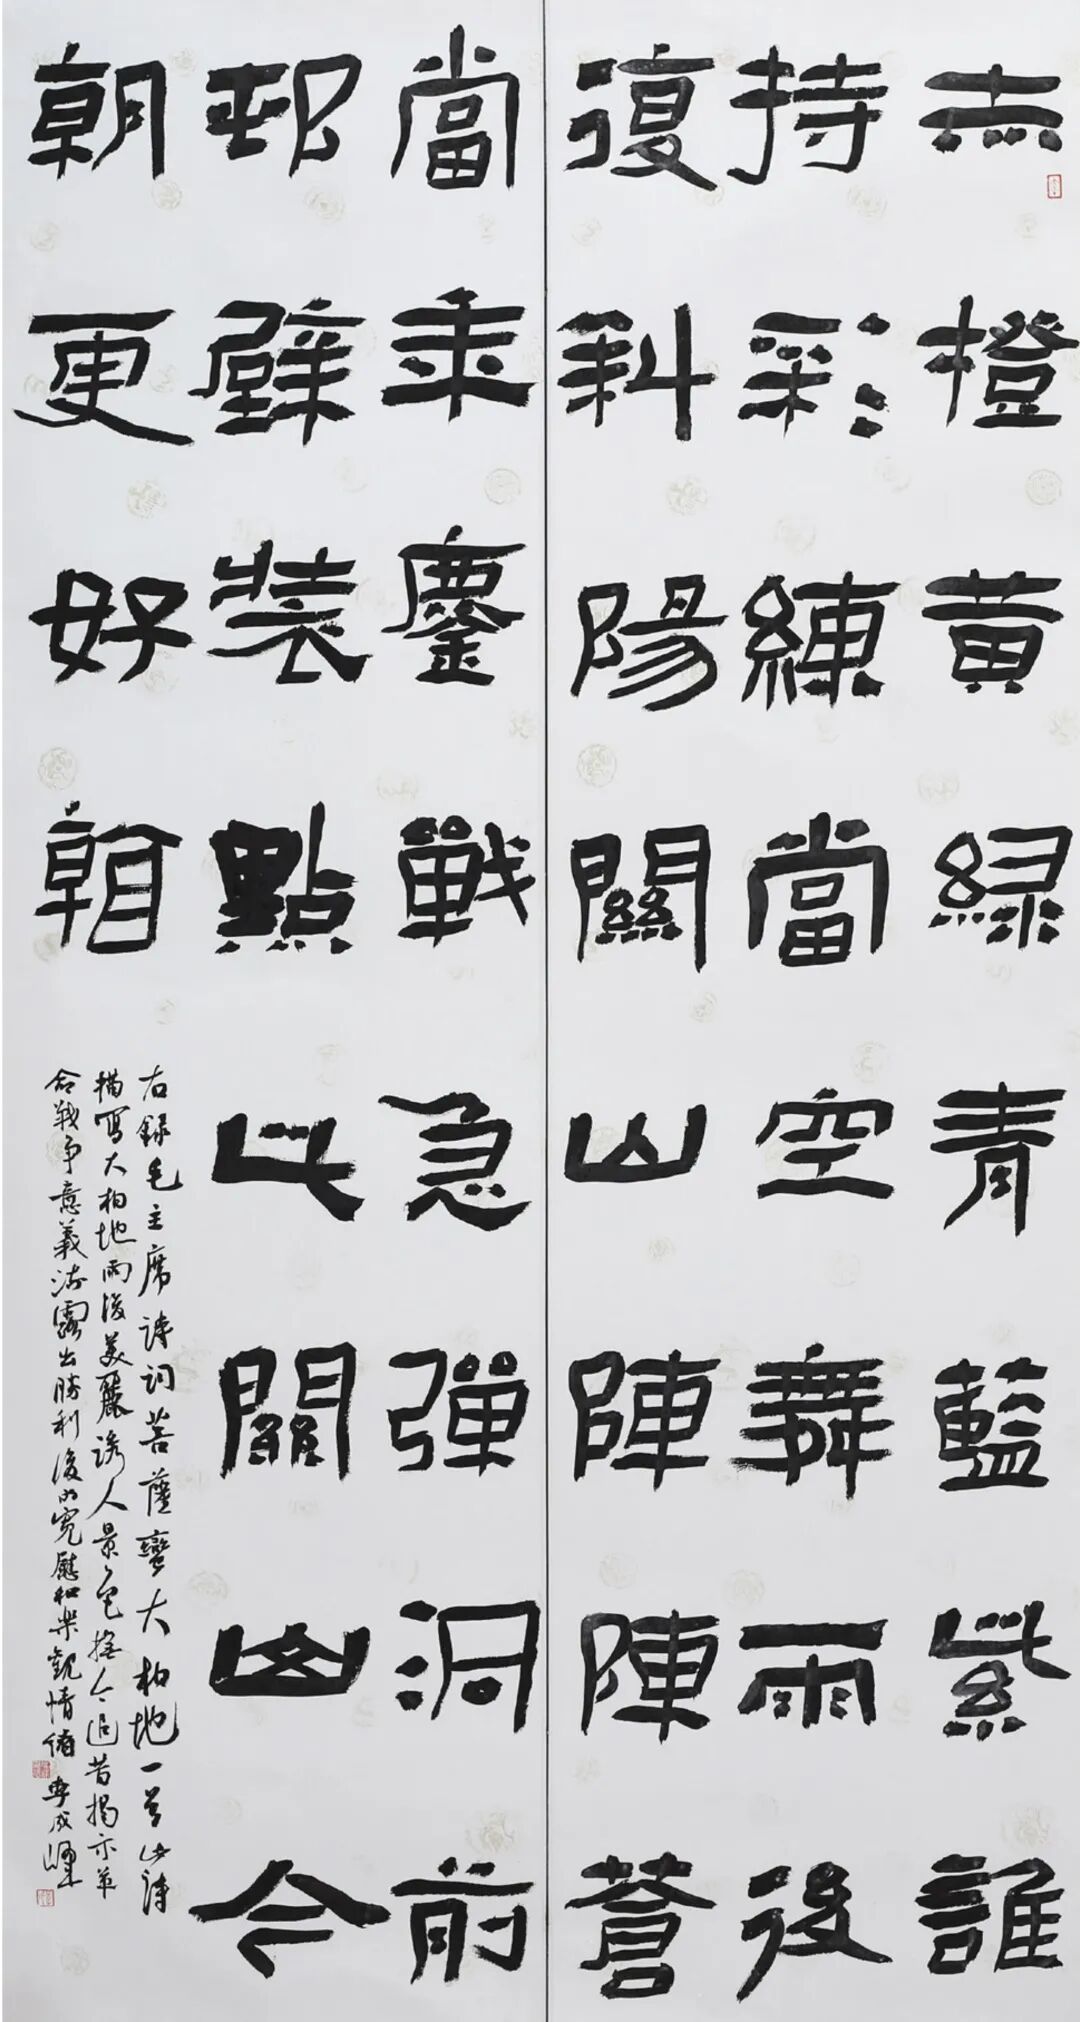 赤橙黄緑青藍紫誰
持彩練當空舞雨後
復斜陽關山陣陣蒼
當年鏖戰急彈洞前
邨壁裝點此關山今
朝更好看
右録毛主席詩詞菩薩蠻大柏地一首此詩
描寫大柏地雨後美麗誘人景色撫今追昔揭示革
命戰争意義流露出勝利後的寬慰和樂觀情緒 李成